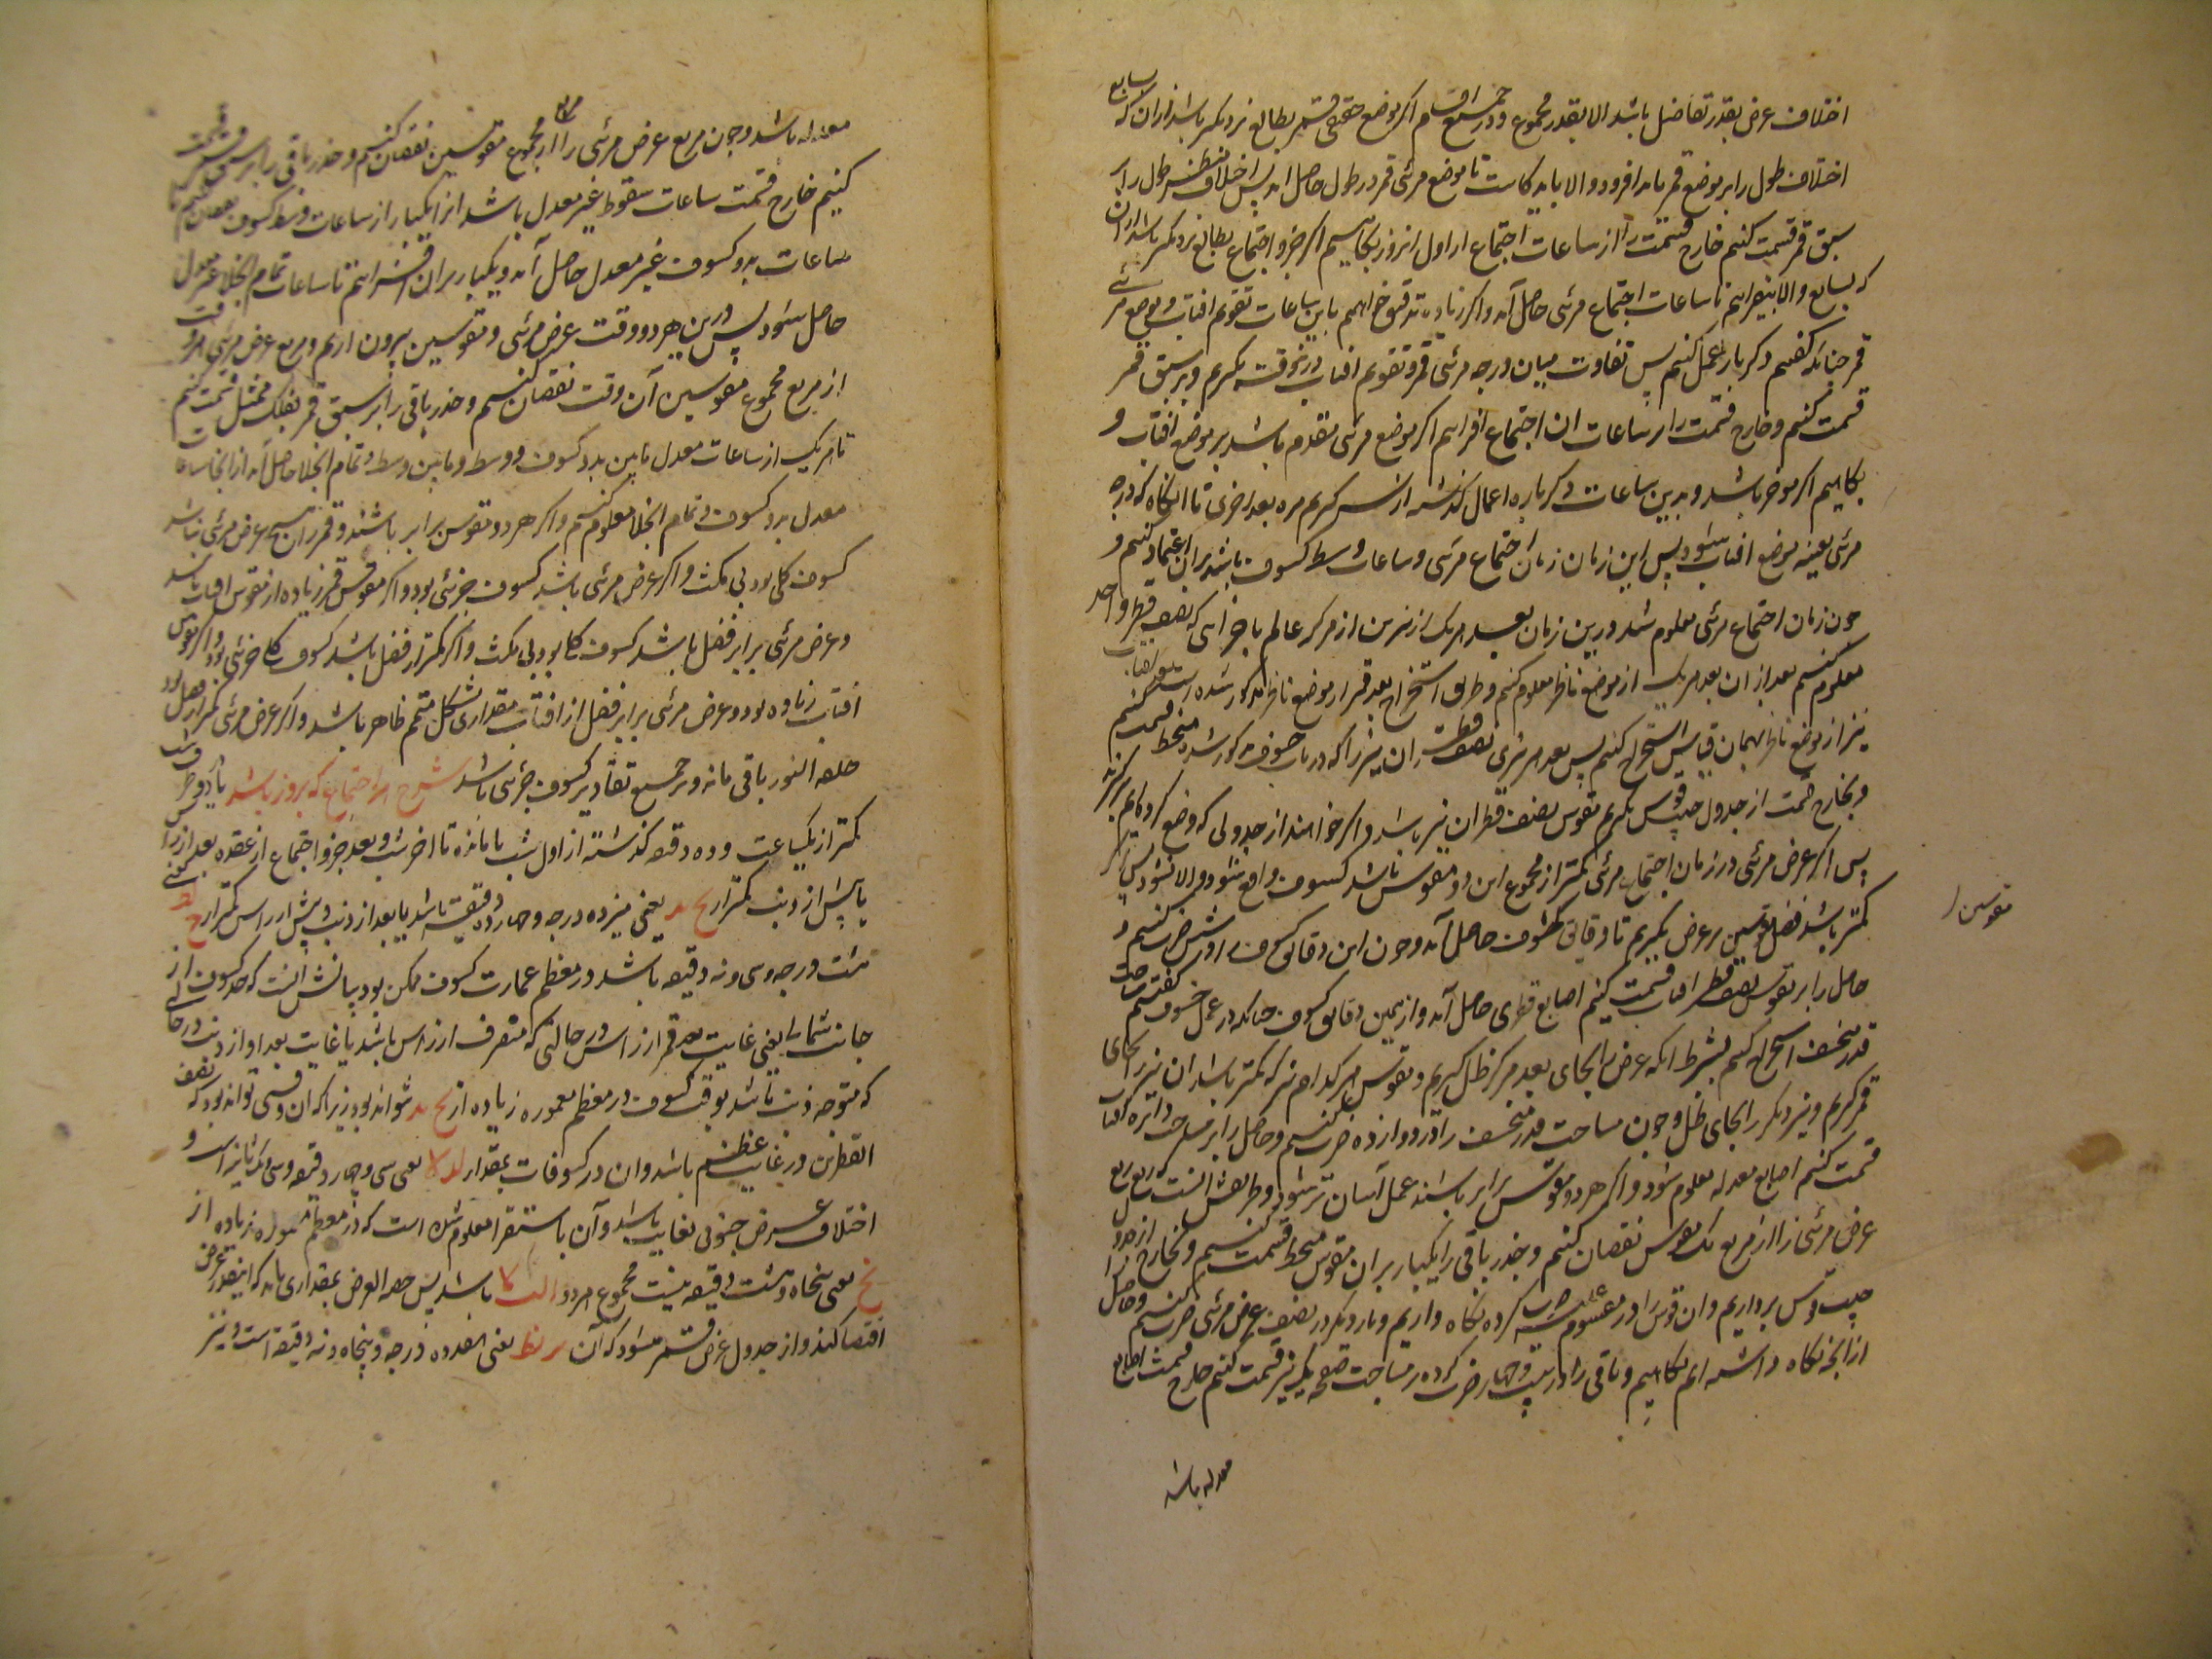 اختلاف عرض بقدر تفاضل باشد الا بقدر مجموع و در جمیع اقسام اکر موضع حقیقی قمر بطالع نزدیکتر باشد ازان که بسابع
اختلاف طول را بر موضع قمر باید افزود و الا باید کاست تا موضع مرئی قمر در طول حاصل اید پس اختلاف منظر طول را بر
سبق قمر قسمت کنیم خارج قسمت را از ساعات اجتماع از اول روز بکاهیم اکر جزو اجتماع بطالع نزدیکتر باشد ازان
که بسابع والا بیفزاییم تا ساعات اجتماع مرئی حاصل آید و اکر زیاده تدقیق خواهیم باین ساعات تقویم افتاب و موضع مرئی
قمر چنانکه کفتیم دکر بار عمل کنیم پس تفاوت میان درجه مرئی قمر و تقویم افتاب درین وقت بکیریم و بر سبق قمر
قسمت کنیم و خارج قسمت را بر ساعات ان اجتماع افزاییم اکر موضع مرئی مقدم باشد بر موضع افتاب و
بکاهیم اکر موخر باشد و بدین ساعات دکر باره اعمال کذشته از سر کیریم مره بعد اخری تا انکاه که درجه
مرئی بعینه موضع افتاب شود پس این زمان زمان اجتماع مرئی و ساعات وسط کسوف باشد بران اعتماد کنیم و
چون زمان اجتماع مرئی معلوم شد درین زمان بعد هر یک از نیرین از مرکز عالم باجزائی که نصف قطر واحد
معلوم کنیم بعد از ان بعد هر یک از موضع ناظر معلوم کنیم و طریق استخراج بعد قمر از موضع ناظر مذکور شده است بعد افتاب
نیز از موضع ناظر بهمان قیاس استخراج کنیم پس بعد هر نیری نصف قطر ان نیز را که در باب خسوف مذکور شد منحط قسمت کنیم
و بخارج قسمت از جدول جیب قوس بکیریم قوس نصف قطر ان نیر باشد و اکر خواهند از جدولی که وضع کرده ایم برکیرند
پس اکر عرض مرئی در زمان اجتماع مرئی کمتر از مجموع این دو قوس باشد کسوف واقع شود و الا نشود پس اکر
کمتر باشد فضل قوسین بر عرض بکیریم تا دقایق کسوف حاصل آید و چون این دقایق کسوف را در شش ضرب کنیم و
حاصل را بر قوس نصف قطر افتاب قسمت کنیم اصابع قطری حاصل آید و از همین دقایق کسوف چنانکه در عمل خسوف کفتیم مساحت
قدر منخسف استخراج کنیم بشرط انکه عرض را بجای بعد مرکز ظل کیریم و قوس هر کدام نیر که کمتر باشد ان نیر را بجای
قمر کیریم و نیر دیکر را بجای ظل و چون مساحت قدر منخسف را در دوازده ضرب کنیم و حاصل را بر مساحت دایره افتاب
قسمت کنیم اصابع معدله معلوم شود و اکر هر دو قوس برابر باشند عمل آسان تر شود و طریقش انست که ربع مربع
عرض مرئی را از مربع یک قوس نقصان کنیم و جذر باقی را یکبار بر ان قوس منحط قسمت کنیم و بخارج از جدول
جیب قوس برداریم و ان قوس را در مقسوم علیه ضرب کرده نکاه داریم و بار دیکر در نصف عرض مرئی ضرب کنیم و حاصل را
از انچه نکاه داشته ایم بکاهیم و باقی را در بیست و چهار ضرب کرده بر مساحت صفحه یک نیر قسمت کنیم خارج قسمت اصابع
معدله باشد
قوسین را
معدله باشد و چون مربع عرض مرئی را از مربع مجموع قوسین نقصان کنیم و جذر باقی را بر سبق قمر قسمت
کنیم خارج قسمت ساعات سقوط غیر معدل باشد انرا یکبار از ساعات وسط کسوف نقصان کنیم تا
ساعات بدو کسوف غیر معدل حاصل آید و یکبار بران افزاییم تا ساعات تمام انجلاء غیر معدل
حاصل شود پس درین هر دو وقت عرض مرئی و قوسین بیرون اریم و مربع عرض مرئی هر وقت
از مربع مجموع قوسین آن وقت نقصان کنیم و جذر باقی را بر سبق قمر بفلک ممثل قسمت کنیم
تا هر یک از ساعات معدل مابین بدو کسوف و وسط و مابین وسط و تمام انجلا حاصل آید از انجا ساعات
معدل بدو کسوف و تمام انجلا معلوم کنیم و اکر هر دو قوس برابر باشند و قمر را هیچ عرض مرئی نباشد
کسوف کلی بود بی مکث و اکر عرض مرئی باشد کسوف جزئی بود و اکر قوس قمر زیاده از قوس افتاب باشد
و عرض مرئی برابر فضل باشد کسوف کلی بود بی مکث و اکر کمتر از فضل باشد کسوف کلی جزئی بود و اکر قوس
افتاب زیاده بود و عرض مرئی برابر فضل از افتاب مقداری بشکل متمم ظاهر باشد و اکر عرض مرئی کمتر از فضل بود
حلقه النور باقی ماند و بر جمیع تقادیر کسوف جزئی باشد شرح هر اجتماع که بروز باشد یا دو طرف شب
کمتر از یکساعت و ده دقیقه کذشته از اول شب یا مانده تا اخر شب و بعد جزو اجتماع از عقده بعد از راس
یا پیش از ذنب کمتر از یح مد یعنی هیزده درجه و چهار دقیقه باشد یا بعد از ذنب و پیش از راس کمتر از ح لط یعنی
هشت درجه و سی و نه دقیقه باشد در معظم عمارت کسوف ممکن بود بیانش انست که حد کسوف از
جانب شمال یعنی غایت بعد قمر از راس در حالتی که منصرف از راس باشد یا غایت بعد او از ذنب در حالی
که متوجه ذنب باشد بوقت کسوف در معظم معموره زیاده از یح مد نتواند بود زیرا که ان وقتی تواند بود که نصف
القطرین در غایت عظم باشد و ان در کسوفات بمقدار لد لا یعنی سی و چهار دقیقه و سی و یک ثانیه است و
اختلاف عرض جنوبی بغایت باشد و آن باستقرا معلوم شده است که در معظم معموره زیاده از
نح یعنی پنجاه و هشت دقیقه نیست مجموع هر دو الب لا باشد پس حصه العرض بمقداری باید که اینقدر عرض
اقتضا کند و از جدول عرض قمر میشود که آن یز نط یعنی هفده درجه و پنجاه و نه دقیقه است و نیز